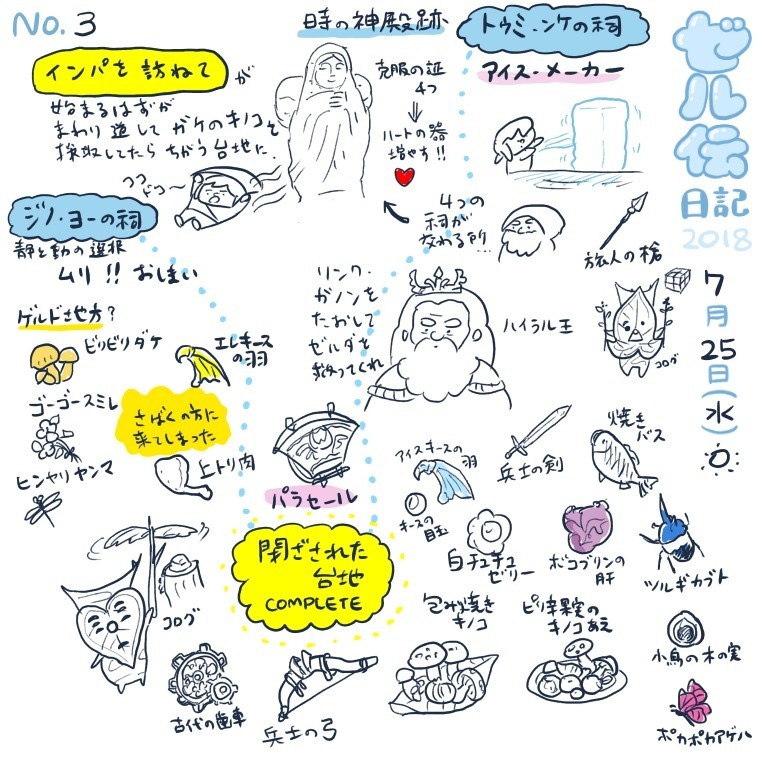 No. 3
時の神殿跡
トゥミ・ンケの祠
アイス・メーカー
ゼル伝
日記
2018
7月25日(水)
インパを訪ねて が
始まるはずが
まわり道して ガケのキノコを
採取してたら ちがう台地に
克服の証
4つ
ハートの器
増やす!!
4つの
祠が
交わる所…
旅人の槍
ジノ・ヨーの祠
静と動の選択
ムリ!! おしまい
リンク・
ガノンを
たおして
ゼルダを
救ってくれ
ハイラル王
コログ
ゲルド地方?
ビリビリダケ
エレキースの羽
ゴーゴースミレ
さばくの方に
来てしまった
ヒンヤリヤンマ
上トリ肉
パラセール
アイスキースの羽
キースの
目玉
兵士の剣
焼き
バス
白チュチュ
ゼリー
ボコブリンの
肝
ツルギカブト
閉ざされた
台地
COMPLETE
コログ
古代の歯車
兵士の弓
包み焼き
キノコ
ピリ辛果実の
キノコあえ
小鳥の木の実
ポカポカアゲハ